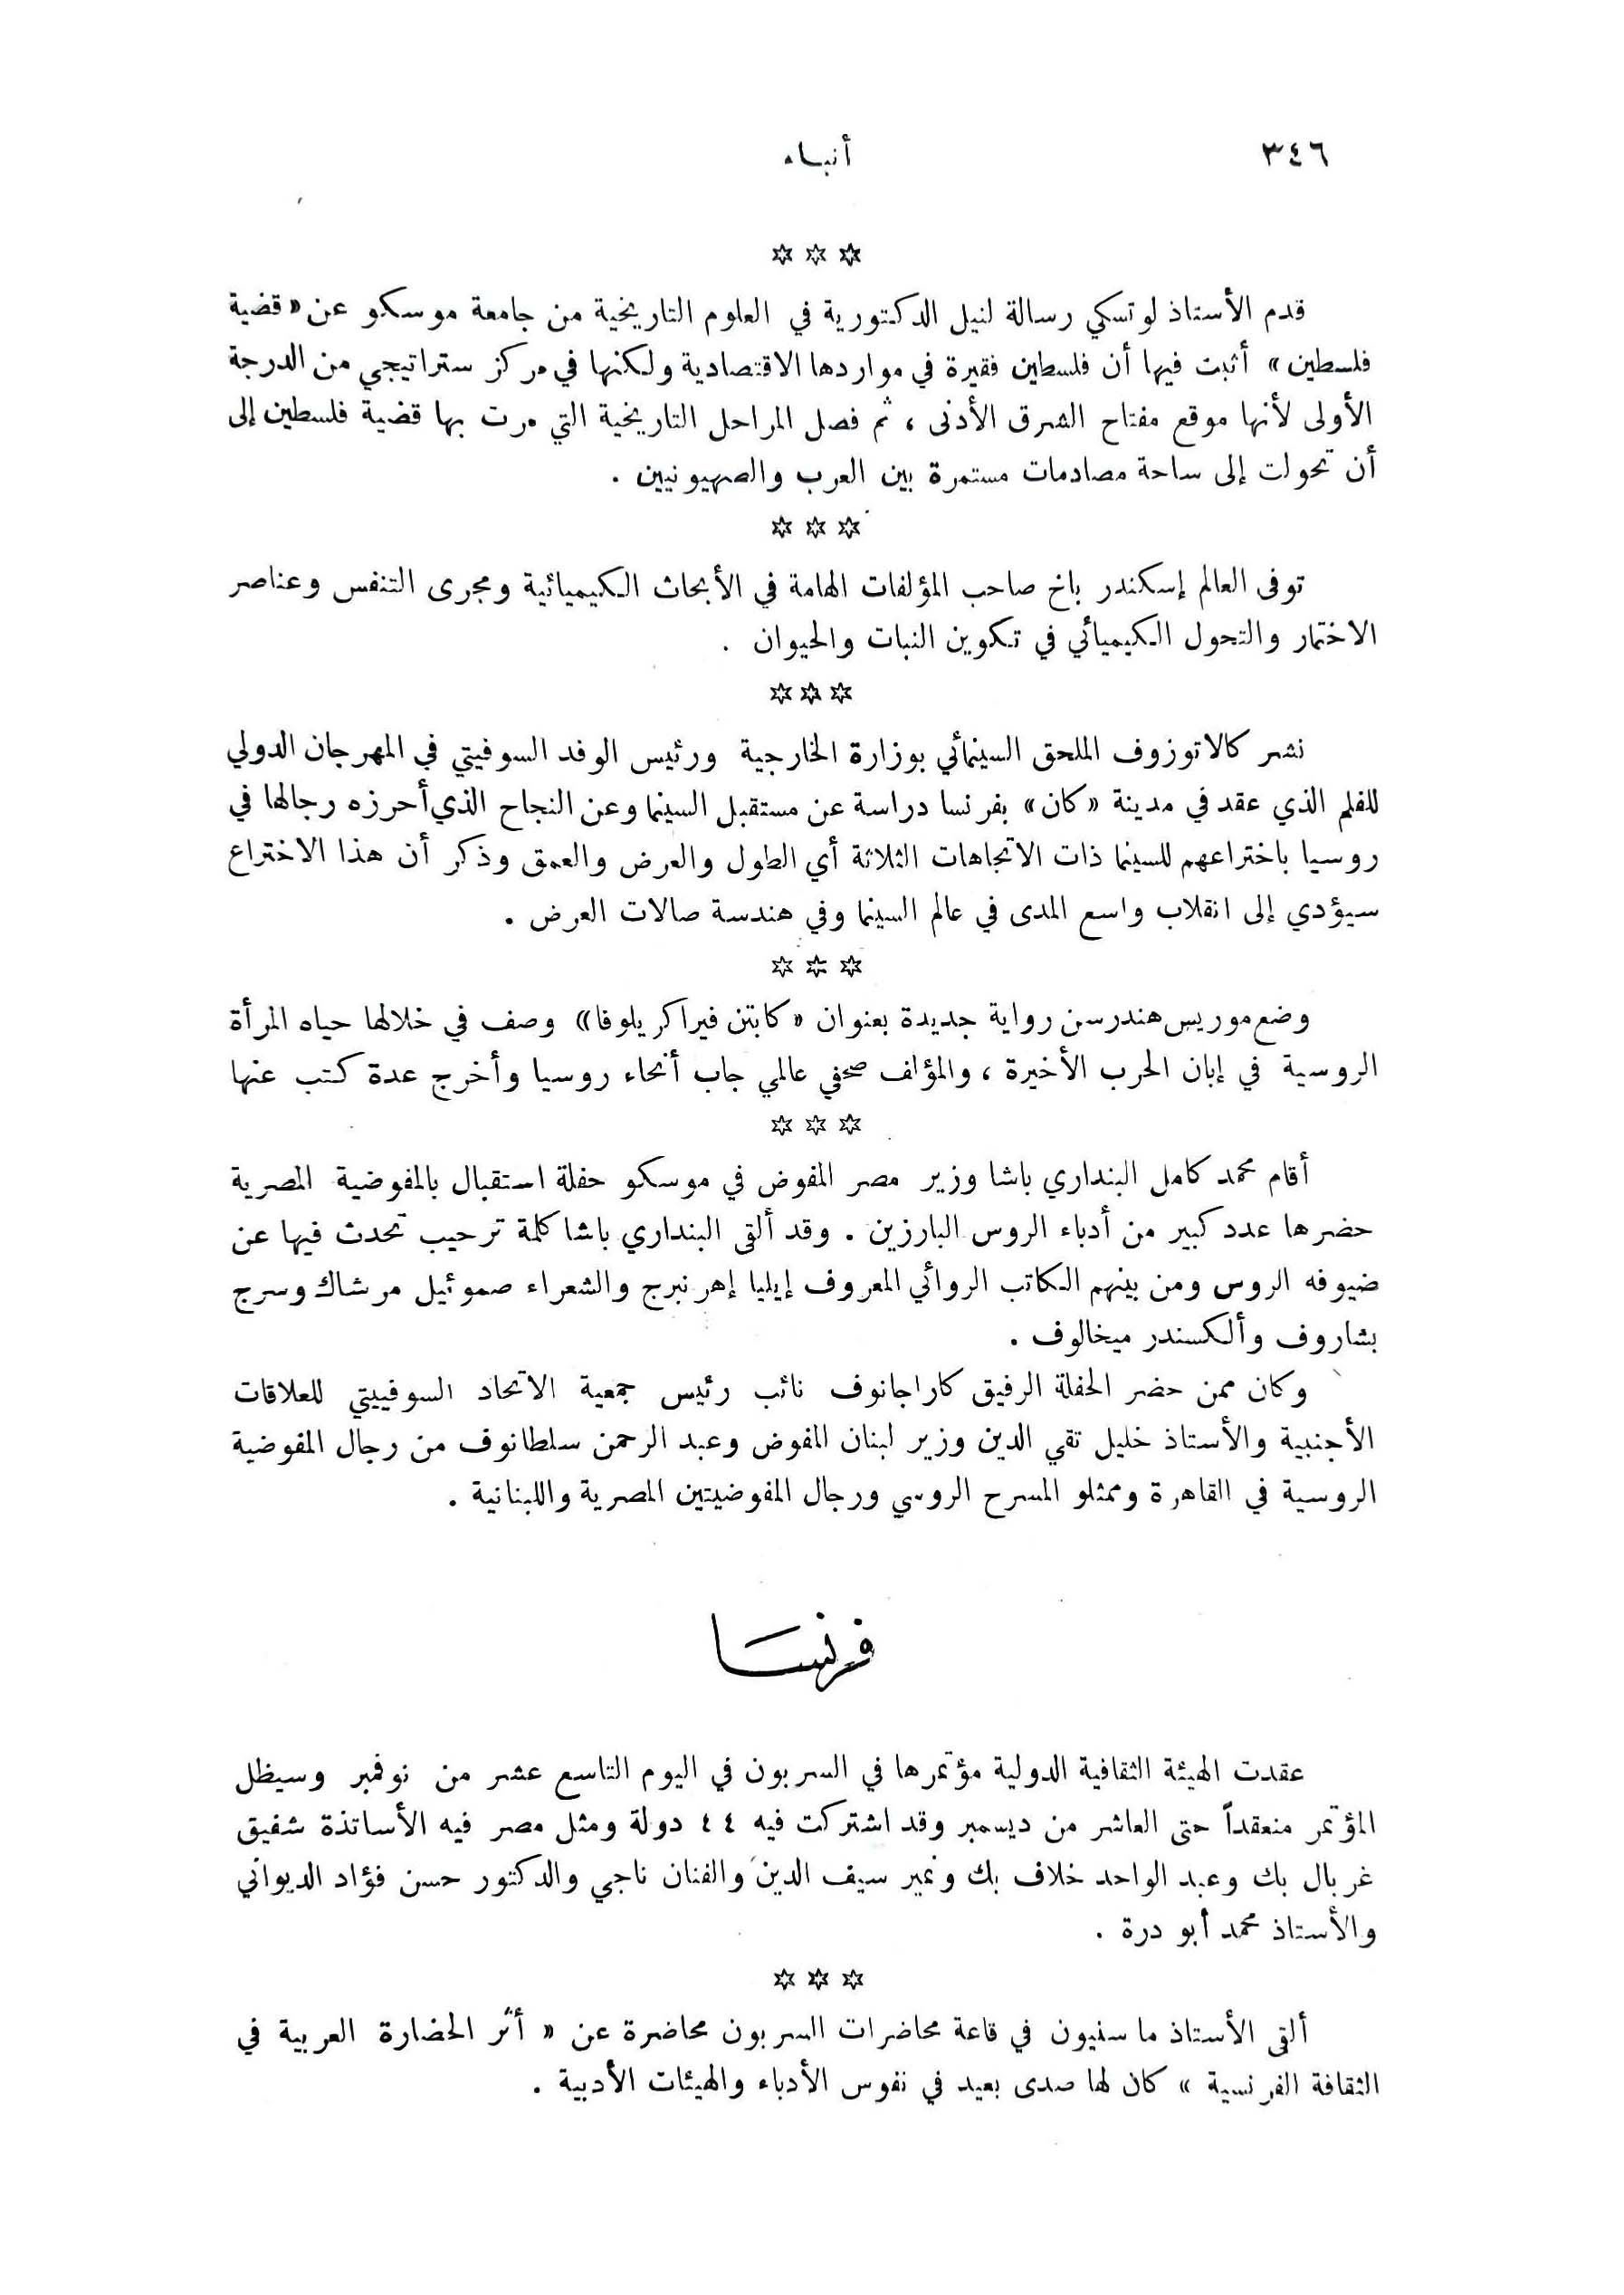 ٣٤٦
أنباء
✡ ✡ ✡
قدم الأستاذ لوتسكي رسالة لنيل الدكتورية في العلوم التاريخية من جامعة موسكو عن « قضية
فلسطين » أثبت فيها أن فلسطين فقيرة في مواردها الاقتصادية ولكنها في مركز ستراتيجي من الدرجة
الأولى لأنها موقع مفتاح الشرق الأدنى ، ثم فصل المراحل التاريخية التي مرت بها قضية فلسطين إلى
أن تحولت إلى ساحة مصادمات مستمرة بين العرب والصهيونيين .
✡ ✡ ✡
توفى العالم إسكندر باخ صاحب المؤلفات الهامة في الأبحاث الكيميائية ومجرى التنفس وعناصر
الاختمار والتحول الكيميائي في تكوين النبات والحيوان .
✡ ✡ ✡
نشر كالاتوزوف الملحق السينمائي بوزارة الخارجية ورئيس الوفد السوفيتي في المهرجان الدولي
للفلم الذي عقد في مدينة «كان» بفرنسا دراسة عن مستقبل السينما وعن النجاح الذي أحرزه رجالها في
روسيا باختراعهم للسينما ذات الاتجاهات الثلاثة أي الطول والعرض والعمق وذكر أن هذا الاختراع
سيؤدي إلى انقلاب واسع المدى في عالم السينما وفي هندسة صالات العرض .
✡ ✡ ✡
وضع موريس هندرسن رواية جديدة بعنوان «كابتن فيراكريلوفا» وصف في خلالها حياه المرأة
الروسية في إبان الحرب الأخيرة ، والمؤلف صحفي عالمي جاب أنحاء روسيا وأخرج عدة كتب عنها
✡ ✡ ✡
أقام محمد كامل البنداري باشا وزير مصر المفوض في موسكو حفلة استقبال بالمفوضية المصرية
حضرها عدد كبير من أدباء الروس البارزين . وقد ألقى البنداري باشا كلمة ترحيب تحدث فيها عن
ضيوفه الروس ومن بينهم الكاتب الروائي المعروف إيليا إهرنبرج والشعراء صموئيل مرشاك وسرج
بشاروف وألكسندر ميخالوف .
وكان ممن حضر الحفلة الرفيق كاراجانوف نائب رئيس جمعية الاتحاد السوفييتي للعلاقات
الأجنبية والأستاذ خليل تقي الدين وزير لبنان المفوض وعبد الرحمن سلطانوف من رجال المفوضية
الروسية في القاهرة وممثلو المسرح الروسي ورجال المفوضيتين المصرية واللبنانية .
فرنسَا
عقدت الهيئة الثقافية الدولية مؤتمرها في السربون في اليوم التاسع عشر من نوفمبر وسيظل
المؤتمر منعقداً حتى العاشر من ديسمبر وقد اشتركت فيه ٤٤ دولة ومثل مصر فيه الأساتذة شفيق
غربال بك وعبد الواحد خلاف بك ونمير سيف الدين والفنان ناجي والدكتور حسن فؤاد الديواني
والأستاذ محمد أبو درة .
✡ ✡ ✡
ألقى الأستاذ ماسنيون في قاعة محاضرات السربون محاضرة عن « أثر الحضارة العربية في
الثقافة الفرنسية » كان لها صدى بعيد في نفوس الأدباء والهيئات الأدبية .